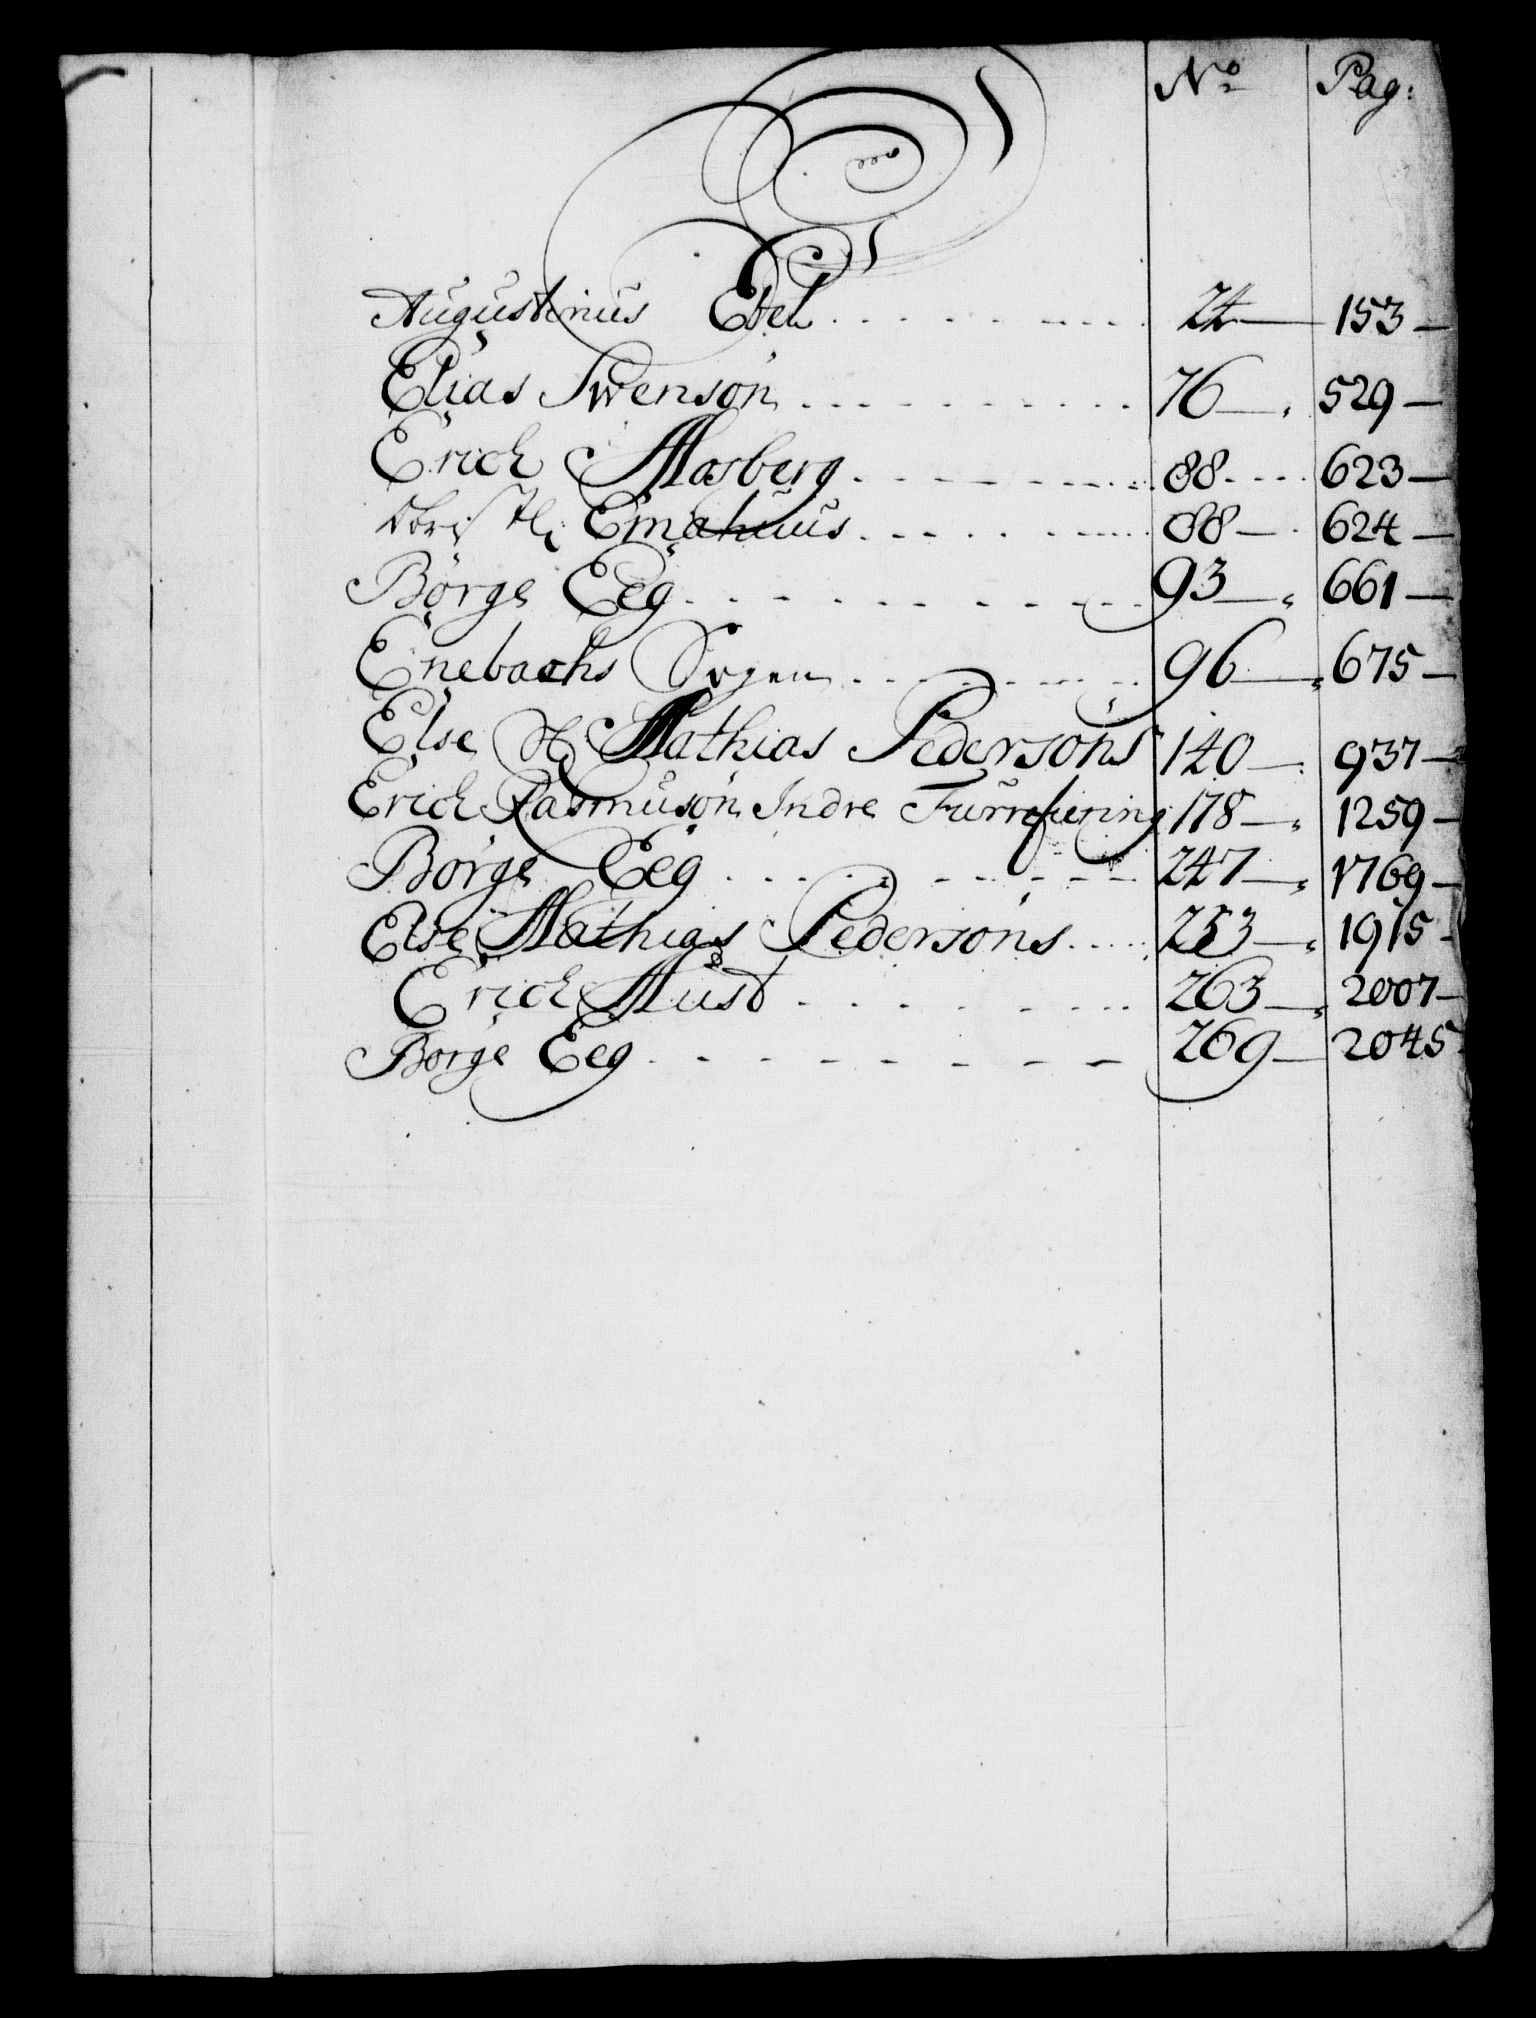 No Pag:
E
Augustinus Etel 24 153
Elias Swenson 76 529
Erich Masberg 88 623
88 624
Börge Eeg 93 661
Enebachs Sogen 96 675
Else Mathias Pedersøns 140 937
Erich Rasmuson Indre 178 1259
Börge Eeg 247 1769
Else Mathias Pedersøns 253 1915
Erich Must 263 2007
Borge Eeg 269 2045